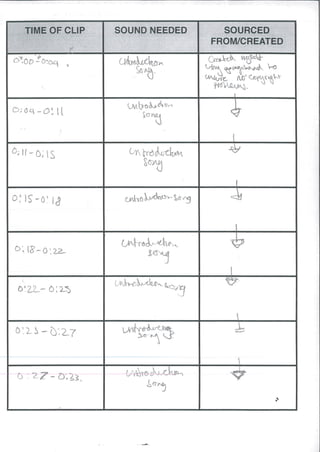 TIME OF CLIP
SOUND NEEDED
SOURCED
FROM/CREATED
0:00 - 0:04
Introduction
Song
Created myself
using garageband to
ensure no copyright
problems.
0:04 - 0:11
Introduction
Song
0:11 - 0:15
Introduction
Song
0:15 - 0:18
Introduction Song
0:18 - 0:22
Introduction
Song
0:22 - 0:23
Introduction Song
0:23 - 0:27
Introduction
Song
0:27 - 0:33.
Introduction
Song